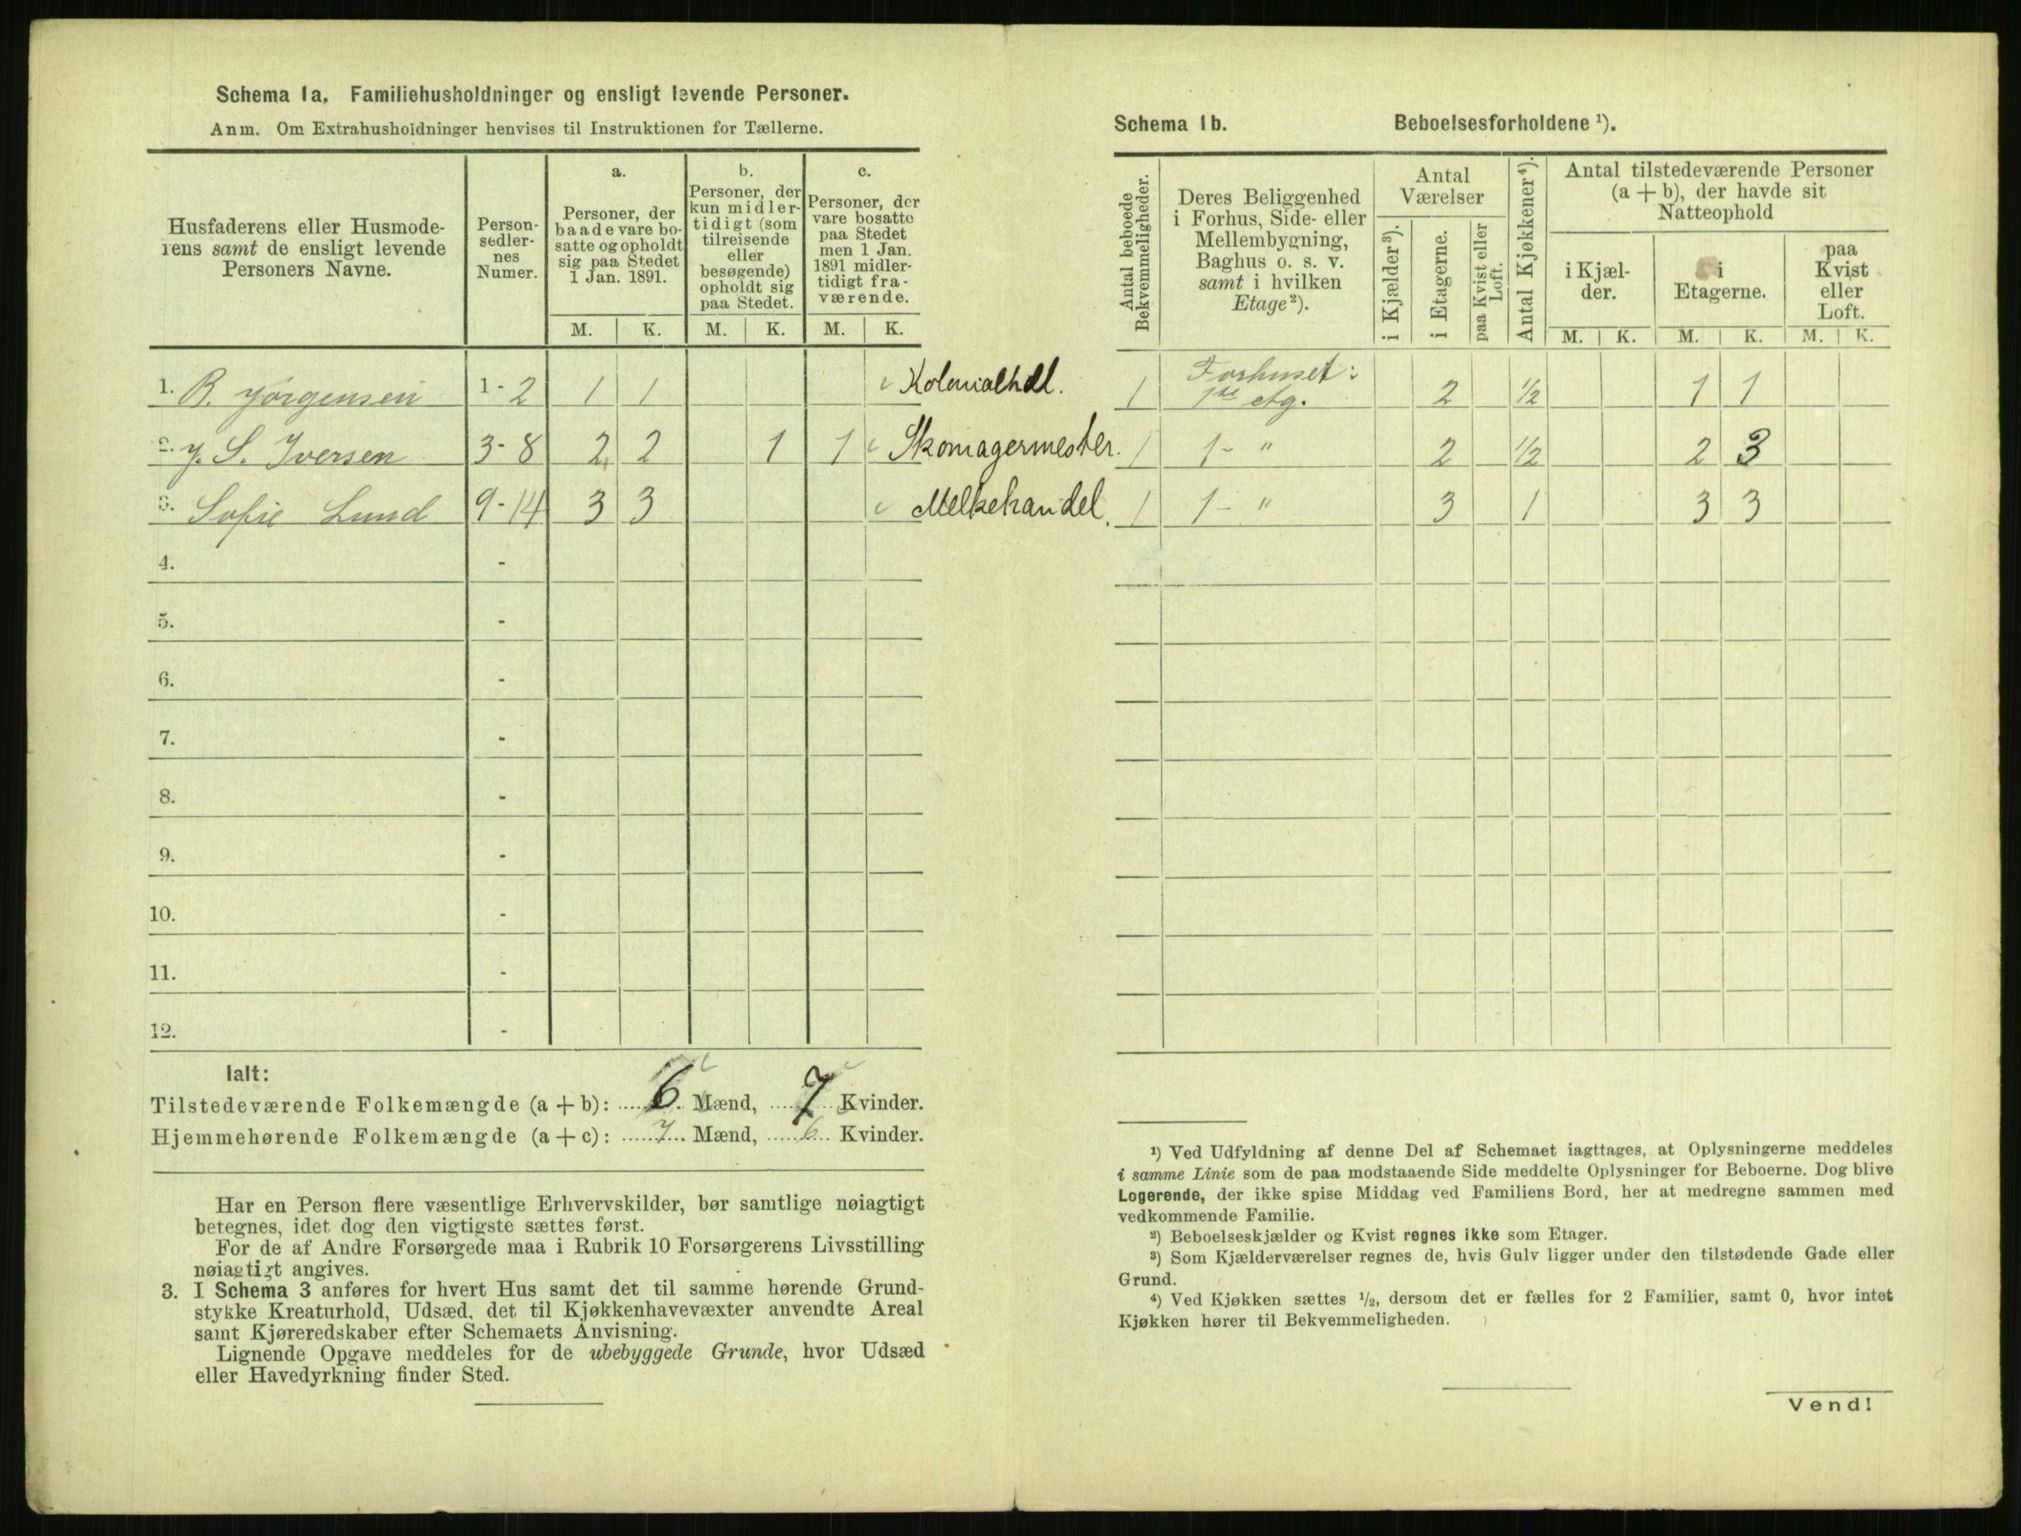 Schema 1a. Familiehusholdninger og ensligt levende Personer.
Anm. Om Extrahusholdninger henvises til Instruktionen for Tællerne.
Husfaderens eller Husmode-
rens samt de ensligt levende
Personers Navne.
Person-
sedler-
nes
Numer.
a.
Personer, der
baade vare bo-
satte og opholdt
sig paa Stedet
1 Jan. 1891.
b.
Personer, der
kun midler-
tidigt (som
tilreisende
eller
besøgende)
opholdt sig
paa Stedet.
c.
Personer, der
vare bosatte
paa Stedet
men 1 Jan.
1891 midler-
tidigt fra-
værende.
M. K. M. K. M. K.
1. B. Jørgensen 1 - 2 1 1 Kolonialhdl.
2. J. S. Iversen 3 - 8 2 2 1 1 Skomagermester.
3. Sofie Lund 9 - 14 3 3 Melkehandel.
4. -
5. -
6. -
7. -
8. -
9. -
10. -
11. -
12. -
Ialt:
Tilstedeværende Folkemængde (a + b): 6 Mænd, 7 Kvinder.
Hjemmehørende Folkemængde (a + c): 7 Mænd, 6 Kvinder.
Har en Person flere væsentlige Erhvervskilder, bør samtlige nøiagtigt
betegnes, idet dog den vigtigste sættes først.
For de af Andre Forsørgede maa i Rubrik 10 Forsørgerens Livsstilling
nøiagtigt angives.
3. I Schema 3 anføres for hvert Hus samt det til samme hørende Grund-
stykke Kreaturhold, Udsæd, det til Kjøkkenhavevæxter anvendte Areal
samt Kjøreredskaber efter Schemaets Anvisning.
Lignende Opgave meddeles for de ubebyggede Grunde, hvor Udsæd
eller Havedyrkning finder Sted.
Schema 1b. Beboelsesforholdene ¹).
Antal beboede
Bekvemmeligheder.
Deres Beliggenhed
i Forhus, Side- eller
Mellembygning,
Baghus o. s. v.
samt i hvilken
Etage²).
Antal
Værelser
i Kjælder³).
i Etagerne.
paa Kvist eller
Loft.
Antal Kjøkkener⁴).
Antal tilstedeværende Personer
(a + b), der havde sit
Natteophold
i Kjæl-
der.
i
Etagerne.
paa
Kvist
eller
Loft.
M. K. M. K. M. K.
1 Forhuset:
1ste etg. 2 ½ 1 1
1 1 - " 2 ½ 2 3
1 1 - " 3 1 3 3
¹) Ved Udfyldning af denne Del af Schemaet iagttages, at Oplysningerne meddeles
i samme Linie som de paa modstaaende Side meddelte Oplysninger for Beboerne. Dog blive
Logerende, der ikke spise Middag ved Familiens Bord, her at medregne sammen med
vedkommende Familie.
²) Beboelseskjælder og Kvist regnes ikke som Etager.
³) Som Kjælderværelser regnes de, hvis Gulv ligger under den tilstødende Gade eller
Grund.
⁴) Ved Kjøkken sættes ½, dersom det er fælles for 2 Familier, samt 0, hvor intet
Kjøkken hører til Bekvemmeligheden.
Vend!